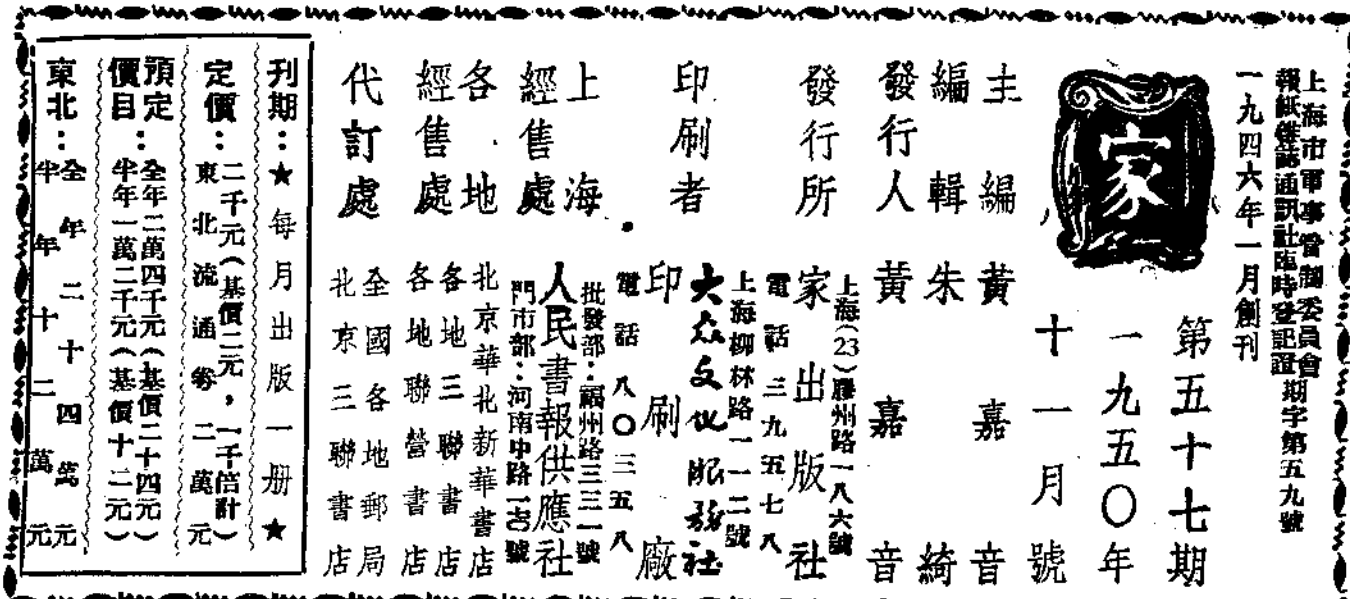 上海市軍事管制委員會
報紙雜誌通訊社臨時登記證期字第五九號
一九四六年一月創刊
家
第五十七期
一九五〇年
十一月號
主編 黃嘉音
編輯 朱綺
發行人 黃嘉音
發行所 家出版社
上海(23)膠州路一八六號
電話 三九五七八
印刷者 大众文化服務社印刷廠
上海柳林路一一二號
電話 八〇三五八
上海經售處 人民書報供應社
批發部：福州路三三一號
門市部：河南中路一七號
各地經售處 北京華北新華書店
各地三聯書店
各地聯營書店
代訂處 全國各地郵局
北京三聯書店
刊期：★每月出版一册★
定價：二千元(基價二元，一千倍計)
東北流通券二萬元
預定價目：全年二萬四千元(基價二十四元)
半年一萬二千元(基價十二元)
東北：全年二十四萬元
半年十二萬元